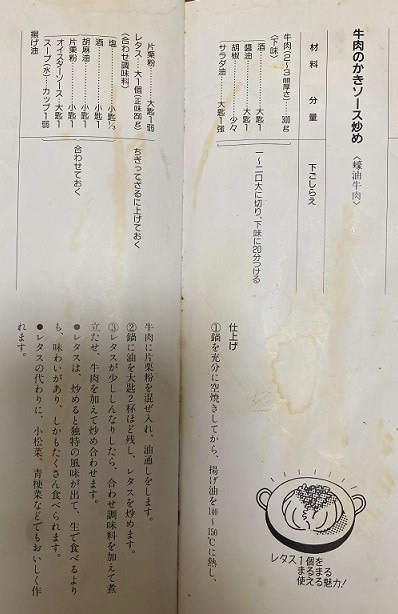 牛肉のかきソース炒め〈蠔油牛肉〉
材料 分量 下ごしらえ
牛肉(2〜3㎜厚さ)…300g
〈下味〉
酒………大匙1
醤油………大匙1
胡椒………少々
サラダ油…大匙1強
一〜二口大に切り、下味に20分つける
片栗粉………大匙1弱
レタス…大1個(正味250g)
ちぎってざるに上げておく
〈合わせ調味料〉
塩………小匙½
酒………小匙1
胡麻油………小匙1
片栗粉………小匙1
オイスターソース…大匙1
スープ(水)…カップ1弱
合わせておく
揚げ油
仕上げ
①鍋を充分に空焼きしてから、揚げ油を140〜150℃に熱し、
牛肉に片栗粉を混ぜ入れ、油通しをします。
②鍋に油を大匙2杯ほど残し、レタスを炒めます。
③レタスが少ししんなりしたら、合わせ調味料を加えて煮
立たせ、牛肉を加えて炒め合わせます。
●レタスは、炒めると独特の風味が出て、生で食べるより
も、味わいがあり、しかもたくさん食べられます。
●レタスの代わりに、小松菜、青梗菜などでもおいしく作
れます。
レタス1個を
まるまる
使える魅力!